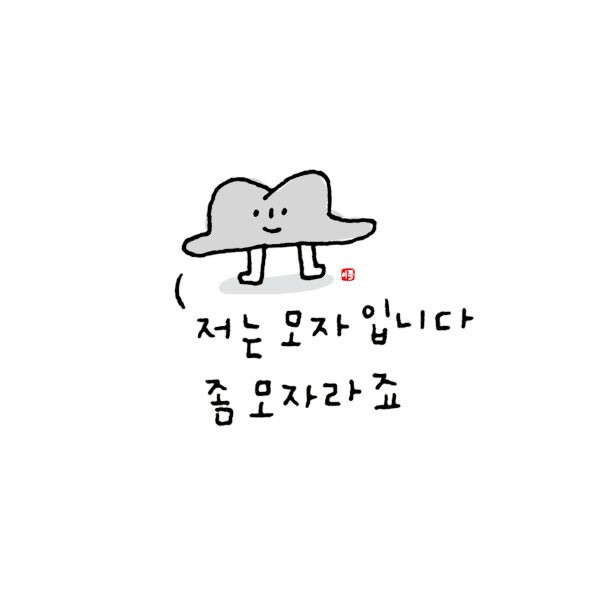 저는 모자입니다
좀 모자라죠